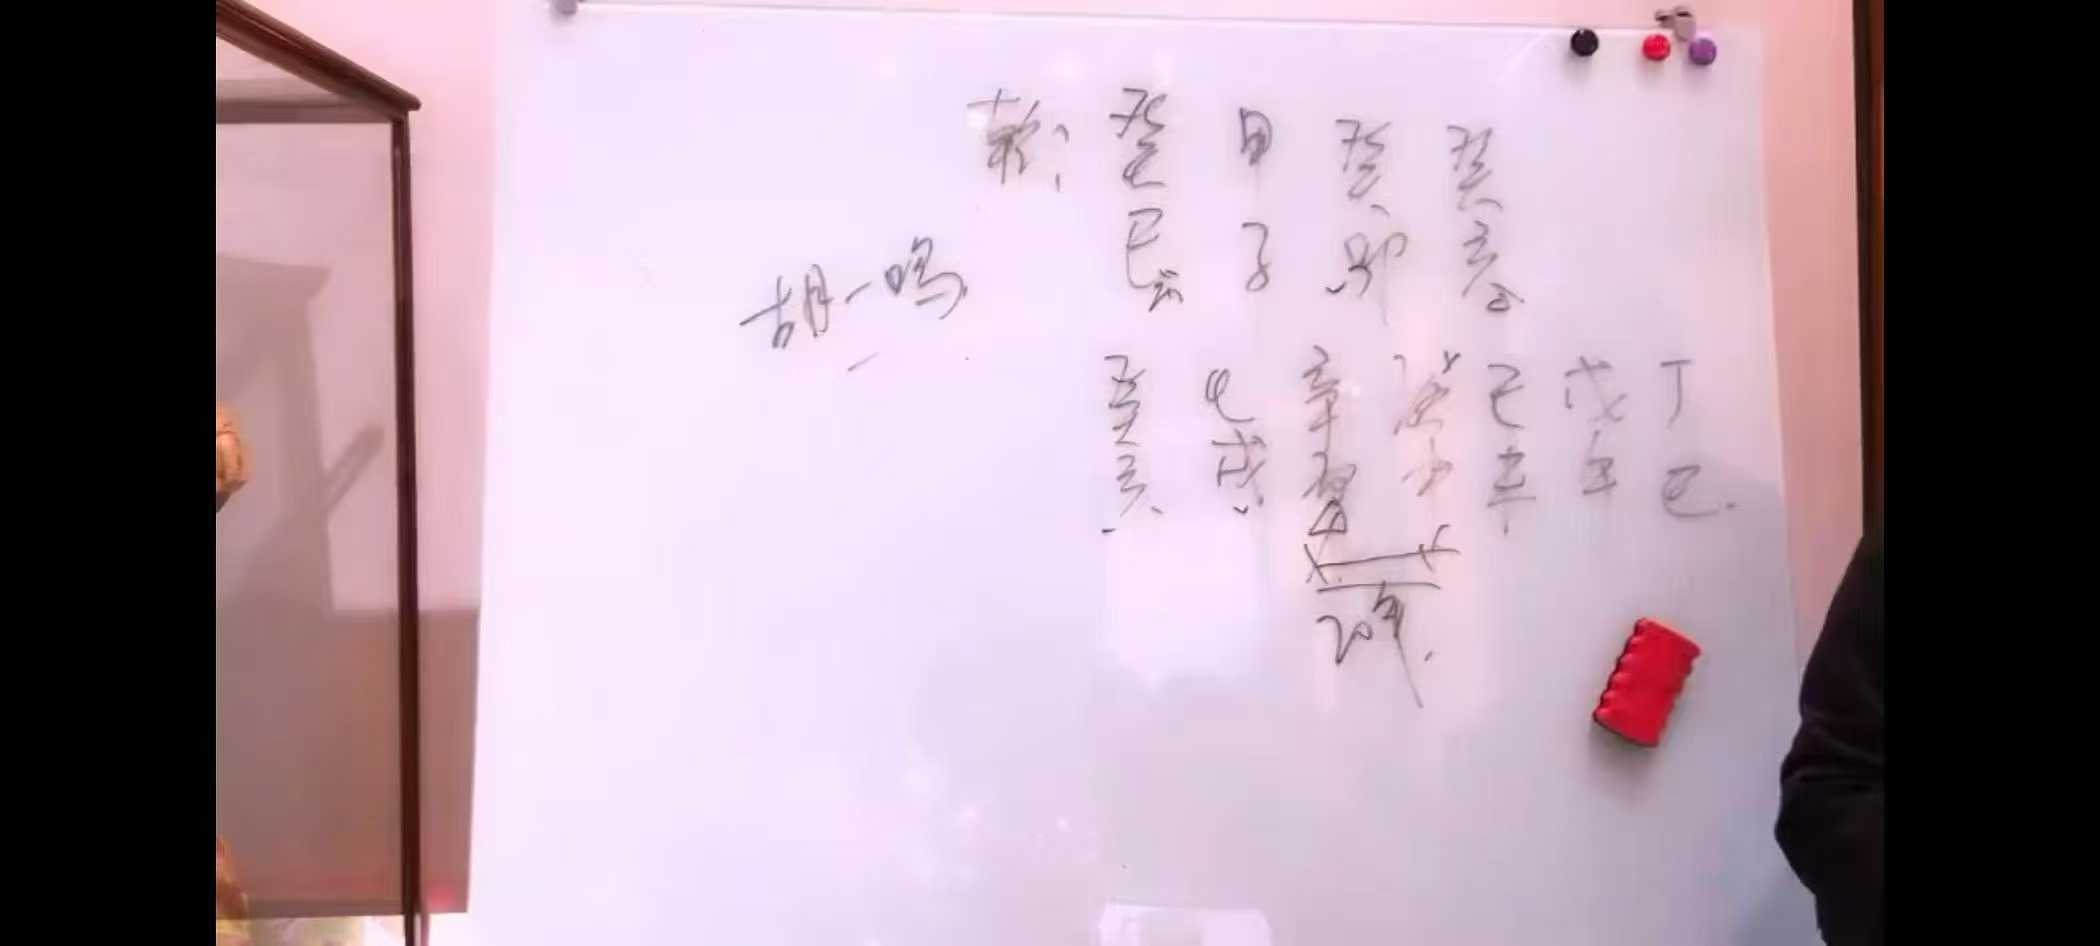 乾：癸 甲 癸 癸
巳 子 卯 亥
胡一鸣
癸 壬 辛 庚 己 戊 丁
亥 戌 酉 申 未 午 巳
20年